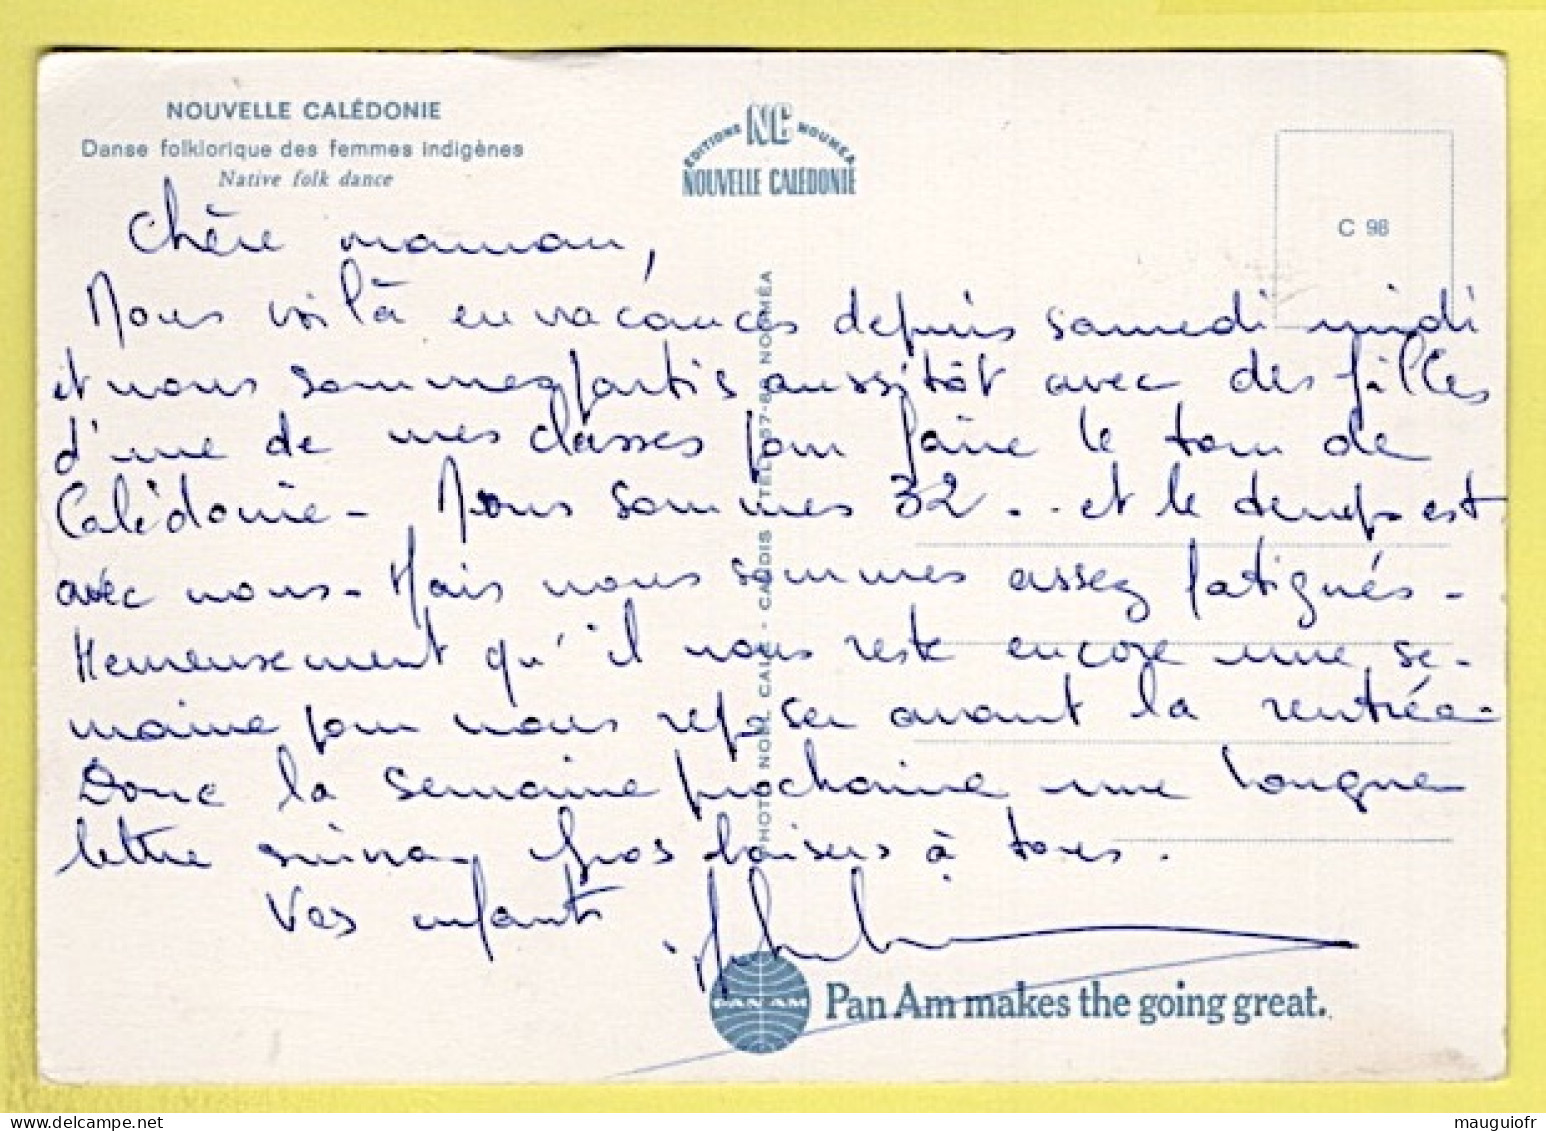 NOUVELLE CALÉDONIE
Danse folklorique des femmes indigènes
Native folk dance
ÉDITIONS NC NOUMÉA
NOUVELLE CALÉDONIE
C 98
Chère maman,
Nous voilà en vacances depuis samedi midi
et nous sommes partis aussitôt avec des filles
d'une de mes classes pour faire le tour de
Calédonie - Nous sommes 32 . . et le temps est
avec nous - Mais nous sommes assez fatigués -
Heureusement qu'il nous reste encore une se-
maine pour nous reposer avant la rentrée -
Donc la semaine prochaine une longue
lettre suivra. Gros baisers à tous.
Vos enfants
PHOTO NOEL CALÉ - CALDIS TEL 67-8 NOUMÉA
PAN AM
Pan Am makes the going great.
mauguiofr